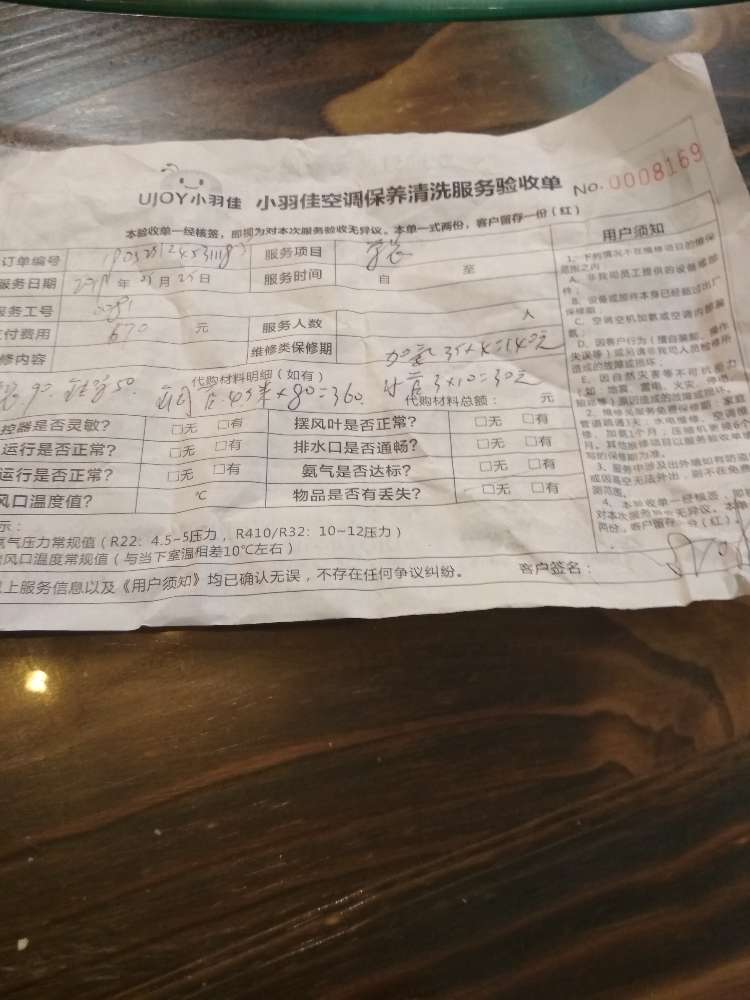 UJOY小羽佳 小羽佳空调保养清洗服务验收单 No. 0008169
本验收单一经核签，即视为对本次服务验收无异议。本单一式两份，客户留存一份（红）
订单编号 服务项目
服务日期 年 月 25 日 服务时间 自 至
服务工号
付费用 670 元 服务人数 人
修内容 维修类保修期 加氨 35×4=140元
代购材料明细（如有）
90 50 4.5米×80=360 3×10=30元
代购材料总额： 元
控器是否灵敏？ □无 □有 摆风叶是否正常？ □无 □有
运行是否正常？ □无 □有 排水口是否通畅？ □无 □有
运行是否正常？ □无 □有 氨气是否达标？ □无 □有
风口温度值？ ℃ 物品是否有丢失？ □无 □有
示：
氨气压力常规值（R22：4.5~5压力，R410/R32：10~12压力）
风口温度常规值（与当下室温相差10℃左右）
上服务信息以及《用户须知》均已确认无误，不存在任何争议纠纷。 客户签名：
用户须知
1、下列情况不在维修项目的维保
范围之内：
A、非我司员工提供的设备或部
件；
B、设备或部件本身已经超过出厂
保修期；
C、空调空机加氨或空调内部漏
氨；
D、因客户行为（擅自装卸、操作
失误等）或另请非我司人员检修所
造成的故障或损坏；
E、因自然灾害等不可抗能力
（如：地震、雷电、火灾、停电、
2、维修类服务免费保修期：家庭
管道疏通3天；水电维修、空调维
修、加氨1个月；压缩机更换6个
月。其他维修项目以服务验收单备
写的保修期为准。
3、服务中涉及出外墙如有防盗
或因高空无法外出，则不在免
测范围。
4、本验收单一经核签，即
对本次服务验收无异议。本单
两份，客户留存一份（红）。